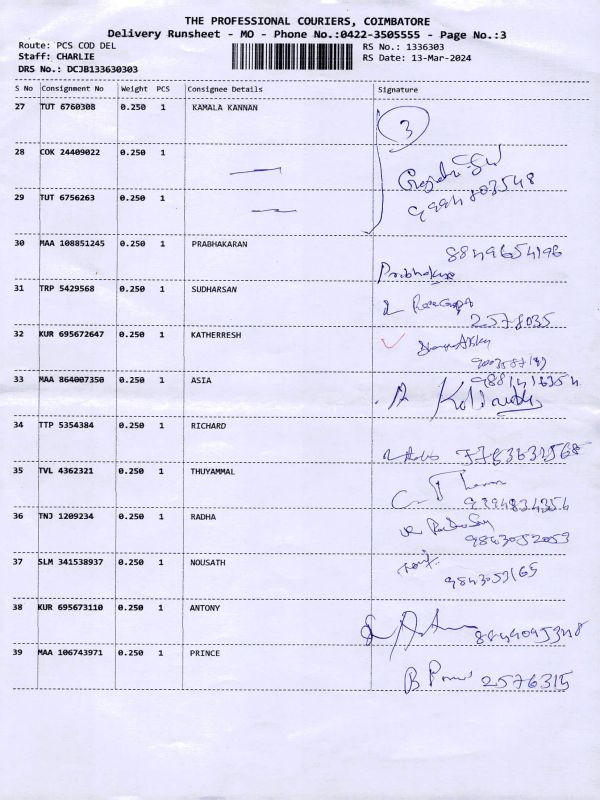 THE PROFESSIONAL COURIERS, COIMBATORE
Delivery Runsheet - MO - Phone No.:0422-3505555 - Page No.:3
Route: PCS COD DEL RS No.: 1336303
Staff: CHARLIE RS Date: 13-Mar-2024
DRS No.: DCJB133630303
S No Consignment No Weight PCS Consignee Details Signature
27 TUT 6760308 0.250 1 KAMALA KANNAN
3
28 COK 24409022 0.250 1
29 TUT 6756263 0.250 1
30 MAA 108851245 0.250 1 PRABHAKARAN
31 TRP 5429568 0.250 1 SUDHARSAN
2578035
32 KUR 695672647 0.250 1 KATHERRESH
33 MAA 864007350 0.250 1 ASIA
34 TTP 5354384 0.250 1 RICHARD
35 TVL 4362321 0.250 1 THUYAMMAL
36 TNJ 1209234 0.250 1 RADHA
9843052053
37 SLM 341538937 0.250 1 NOUSATH
9843053165
38 KUR 695673110 0.250 1 ANTONY
39 MAA 106743971 0.250 1 PRINCE
2576315